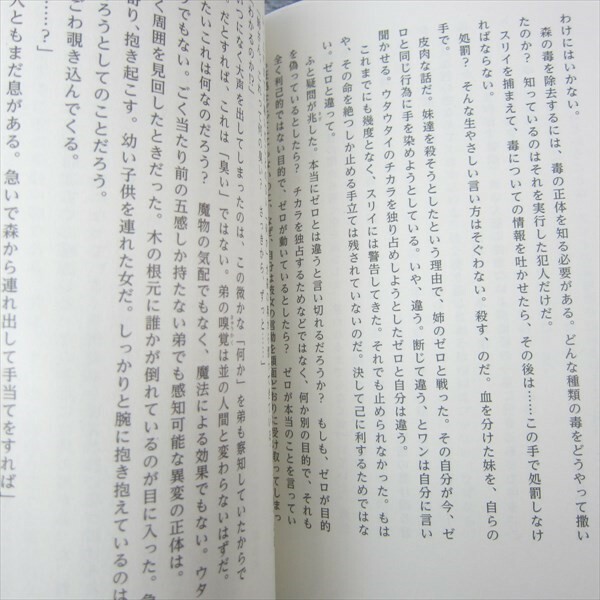 わけにはいかない。
森の毒を除去するには、毒の正体を知る必要がある。どんな種類の毒をどうやって撒い
たのか？　知っているのはそれを実行した犯人だけだ。
スリイを捕まえて、毒についての情報を吐かせたら、その後は……この手で処罰しなけ
ればならない。
処罰？　そんな生やさしい言い方はそぐわない。殺す、のだ。血を分けた妹を、自らの
手で。
皮肉な話だ。妹達を殺そうとしたという理由で、姉のゼロと戦った。その自分が今、ゼ
ロと同じ行為に手を染めようとしている。いや、違う。断じて違う、とワンは自分に言い
聞かせる。ウタウタイのチカラを独り占めしようとしたゼロと自分は違う。
これまでにも幾度となく、スリイには警告してきた。それでも止められなかった。もは
や、その命を絶つしか止める手立ては残されていないのだ。決して己に利するためではな
い。ゼロと違って。
ふと疑問が兆した。本当にゼロとは違うと言い切れるだろうか？　もしも、ゼロが目的
を偽っているとしたら？　チカラを独占するためなどではなく、何か別の目的で、それも
全く利己的ではない目的で、ゼロが動いているとしたら？　ゼロが本当のことを言ってい
自分は彼女の言動を額面どおりに受け取ってしまっ
いつになく大声を出してしまったのは、この微かな「何か」を弟も察知していたからで
だとすれば、これは「臭い」ではない。弟の嗅覚は並の人間と変わらないはずだ。
たいこれは何なのだろう？　魔物の気配でもなく、魔法による効果でもない。ウタ
でもない。ごく当たり前の五感しか持たない弟でも感知可能な異変の正体は。
く周囲を見回したときだった。木の根元に誰かが倒れているのが目に入った。急
寄り、抱き起こす。幼い子供を連れた女だ。しっかりと腕に抱き抱えているのは
ろうとしてのことだろう。
ごわ覗き込んでくる。
……？」
人ともまだ息がある。急いで森から連れ出して手当てをすれば」